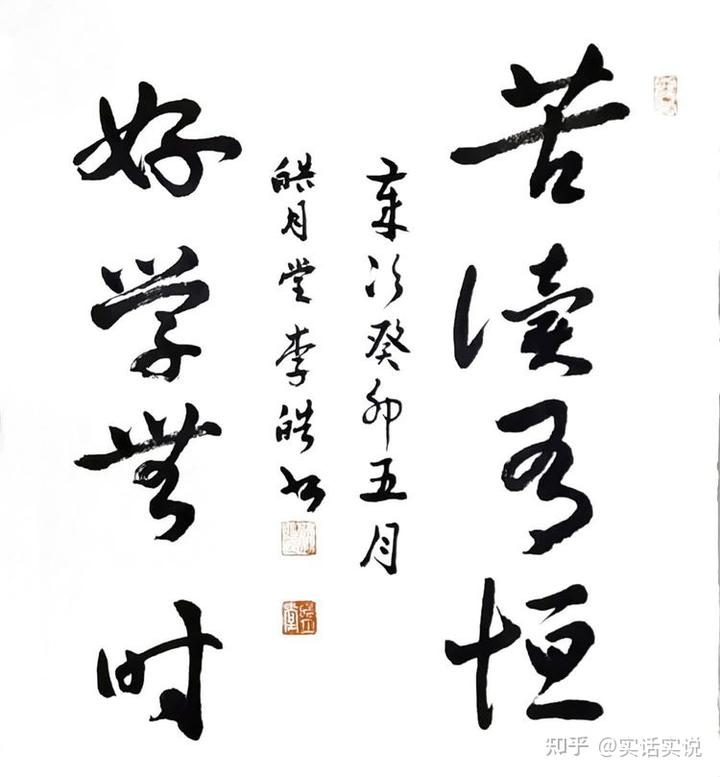 苦读有恒
岁次癸卯五月
好学無时
皓月堂李皓书
知乎 @实话实说